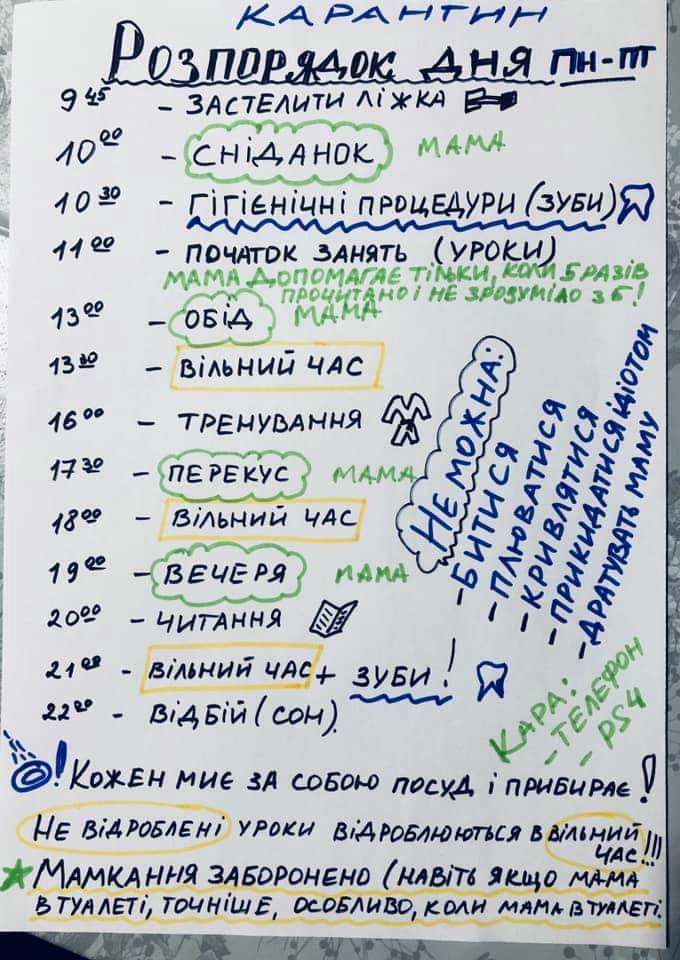 КАРАНТИН
РОЗПОРЯДОК ДНЯ ПН-ПТ
9 45 - ЗАСТЕЛИТИ ЛІЖКА
10 00 - СНІДАНОК МАМА
10 30 - ГІГІЄНІЧНІ ПРОЦЕДУРИ (ЗУБИ)
11 00 - ПОЧАТОК ЗАНЯТЬ (УРОКИ)
МАМА ДОПОМАГАЄ ТІЛЬКИ, КОЛИ 5 РАЗІВ
ПРОЧИТАНО І НЕ ЗРОЗУМІЛО З 6!
13 00 - ОБІД МАМА
13 30 - ВІЛЬНИЙ ЧАС
16 00 - ТРЕНУВАННЯ
17 30 - ПЕРЕКУС МАМА
18 00 - ВІЛЬНИЙ ЧАС
19 00 - ВЕЧЕРЯ МАМА
20 00 - ЧИТАННЯ
21 00 - ВІЛЬНИЙ ЧАС + ЗУБИ!
22 00 - ВІДБІЙ (СОН).
НЕ МОЖНА:
- БИТИСЯ
- ПЛЮВАТИСЯ
- КРИВЛЯТИСЯ
- ПРИКИДАТИСЯ ІДІОТОМ
- ДРАТУВАТЬ МАМУ
КАРА:
- ТЕЛЕФОН
- PS4
! КОЖЕН МИЄ ЗА СОБОЮ ПОСУД І ПРИБИРАЄ!
НЕ ВІДРОБЛЕНІ УРОКИ ВІДРОБЛЮЮТЬСЯ В ВІЛЬНИЙ
ЧАС!!!
МАМКАННЯ ЗАБОРОНЕНО (НАВІТЬ ЯКЩО МАМА
В ТУАЛЕТІ, ТОЧНІШЕ, ОСОБЛИВО, КОЛИ МАМА В ТУАЛЕТІ.